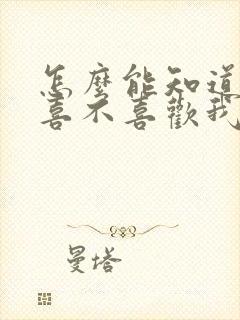 怎麼能知道
喜不喜歡我
曼塔